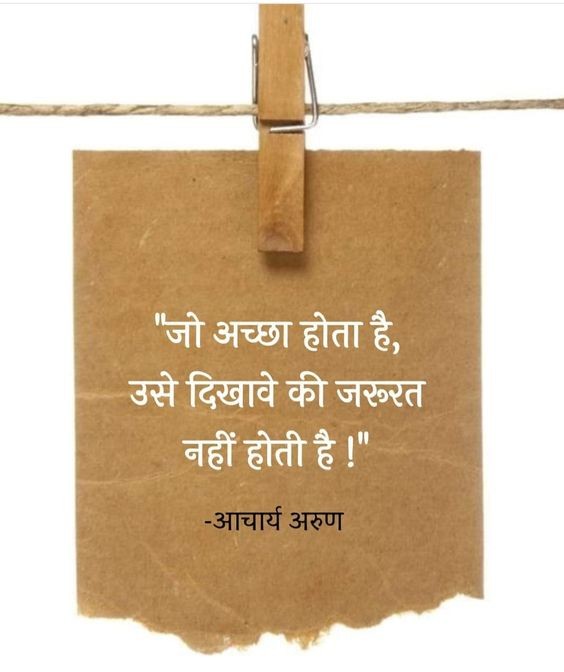 "जो अच्छा होता है,
उसे दिखावे की जरूरत
नहीं होती है !"
-आचार्य अरुण